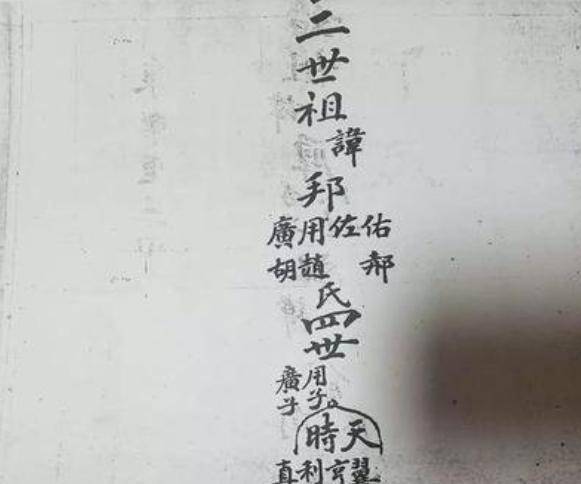 三世祖
諱
邦
佑佐用廣
郝趙胡
氏
四世
用子
廣子
天時
翼亨利真